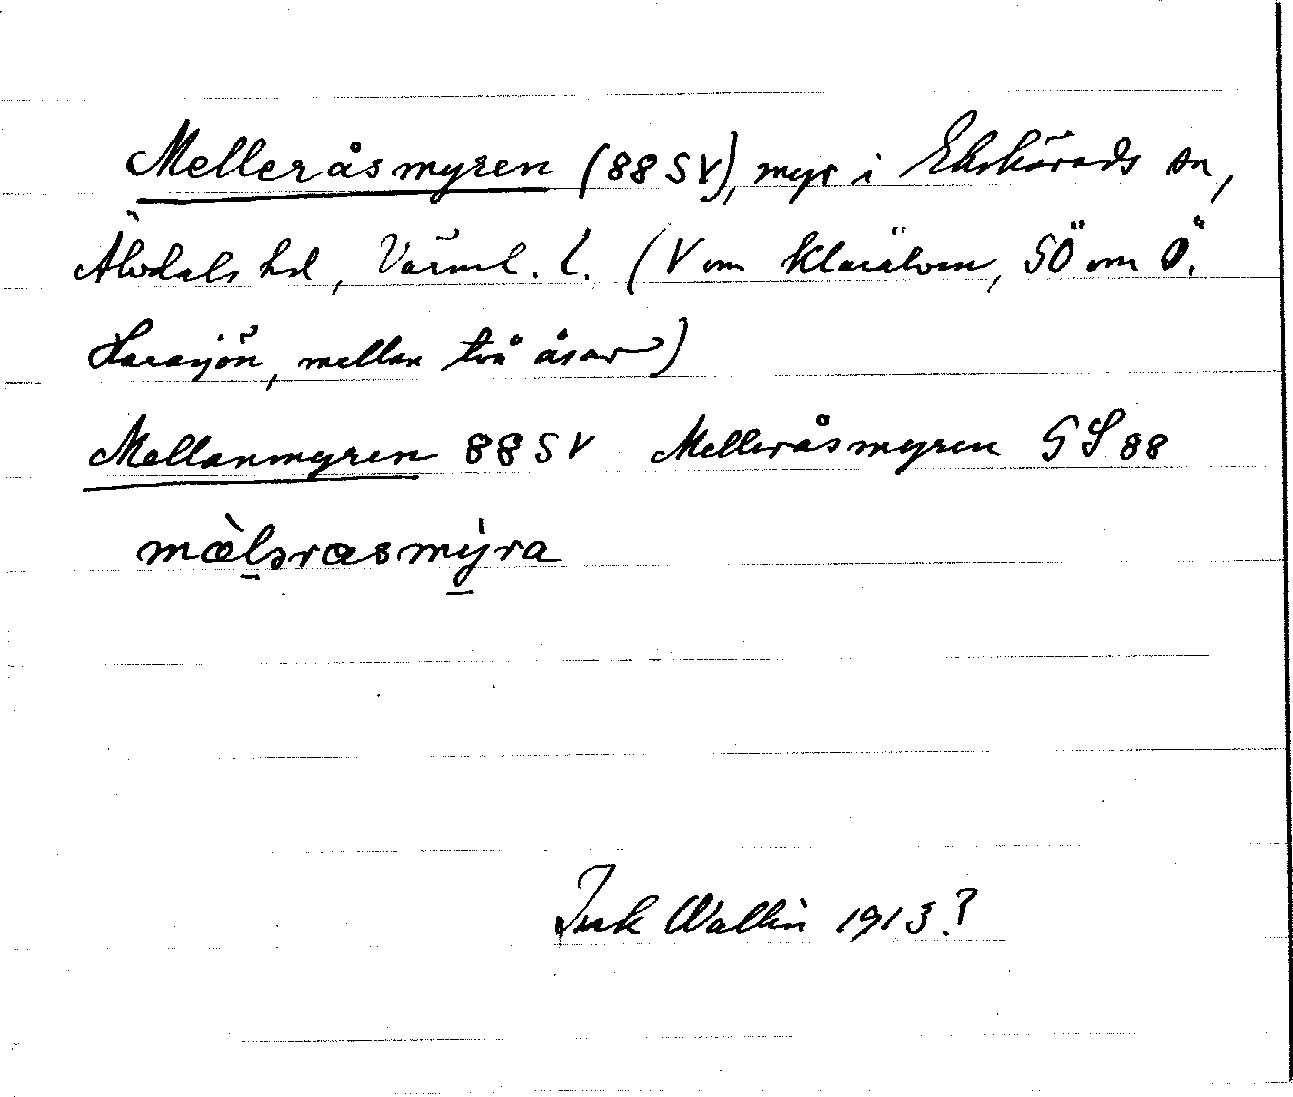 Melleråsmyren (88 SV), myr i Ekshärads sn,
Älvdals hd, Värml. l. (V om Klarälven, SÖ om Ö.
Harasjön, mellan två åsar)
Mellanmyren 88 SV Melleråsmyren GS 88
mæ̀lərasmýra
Wallin 1913?